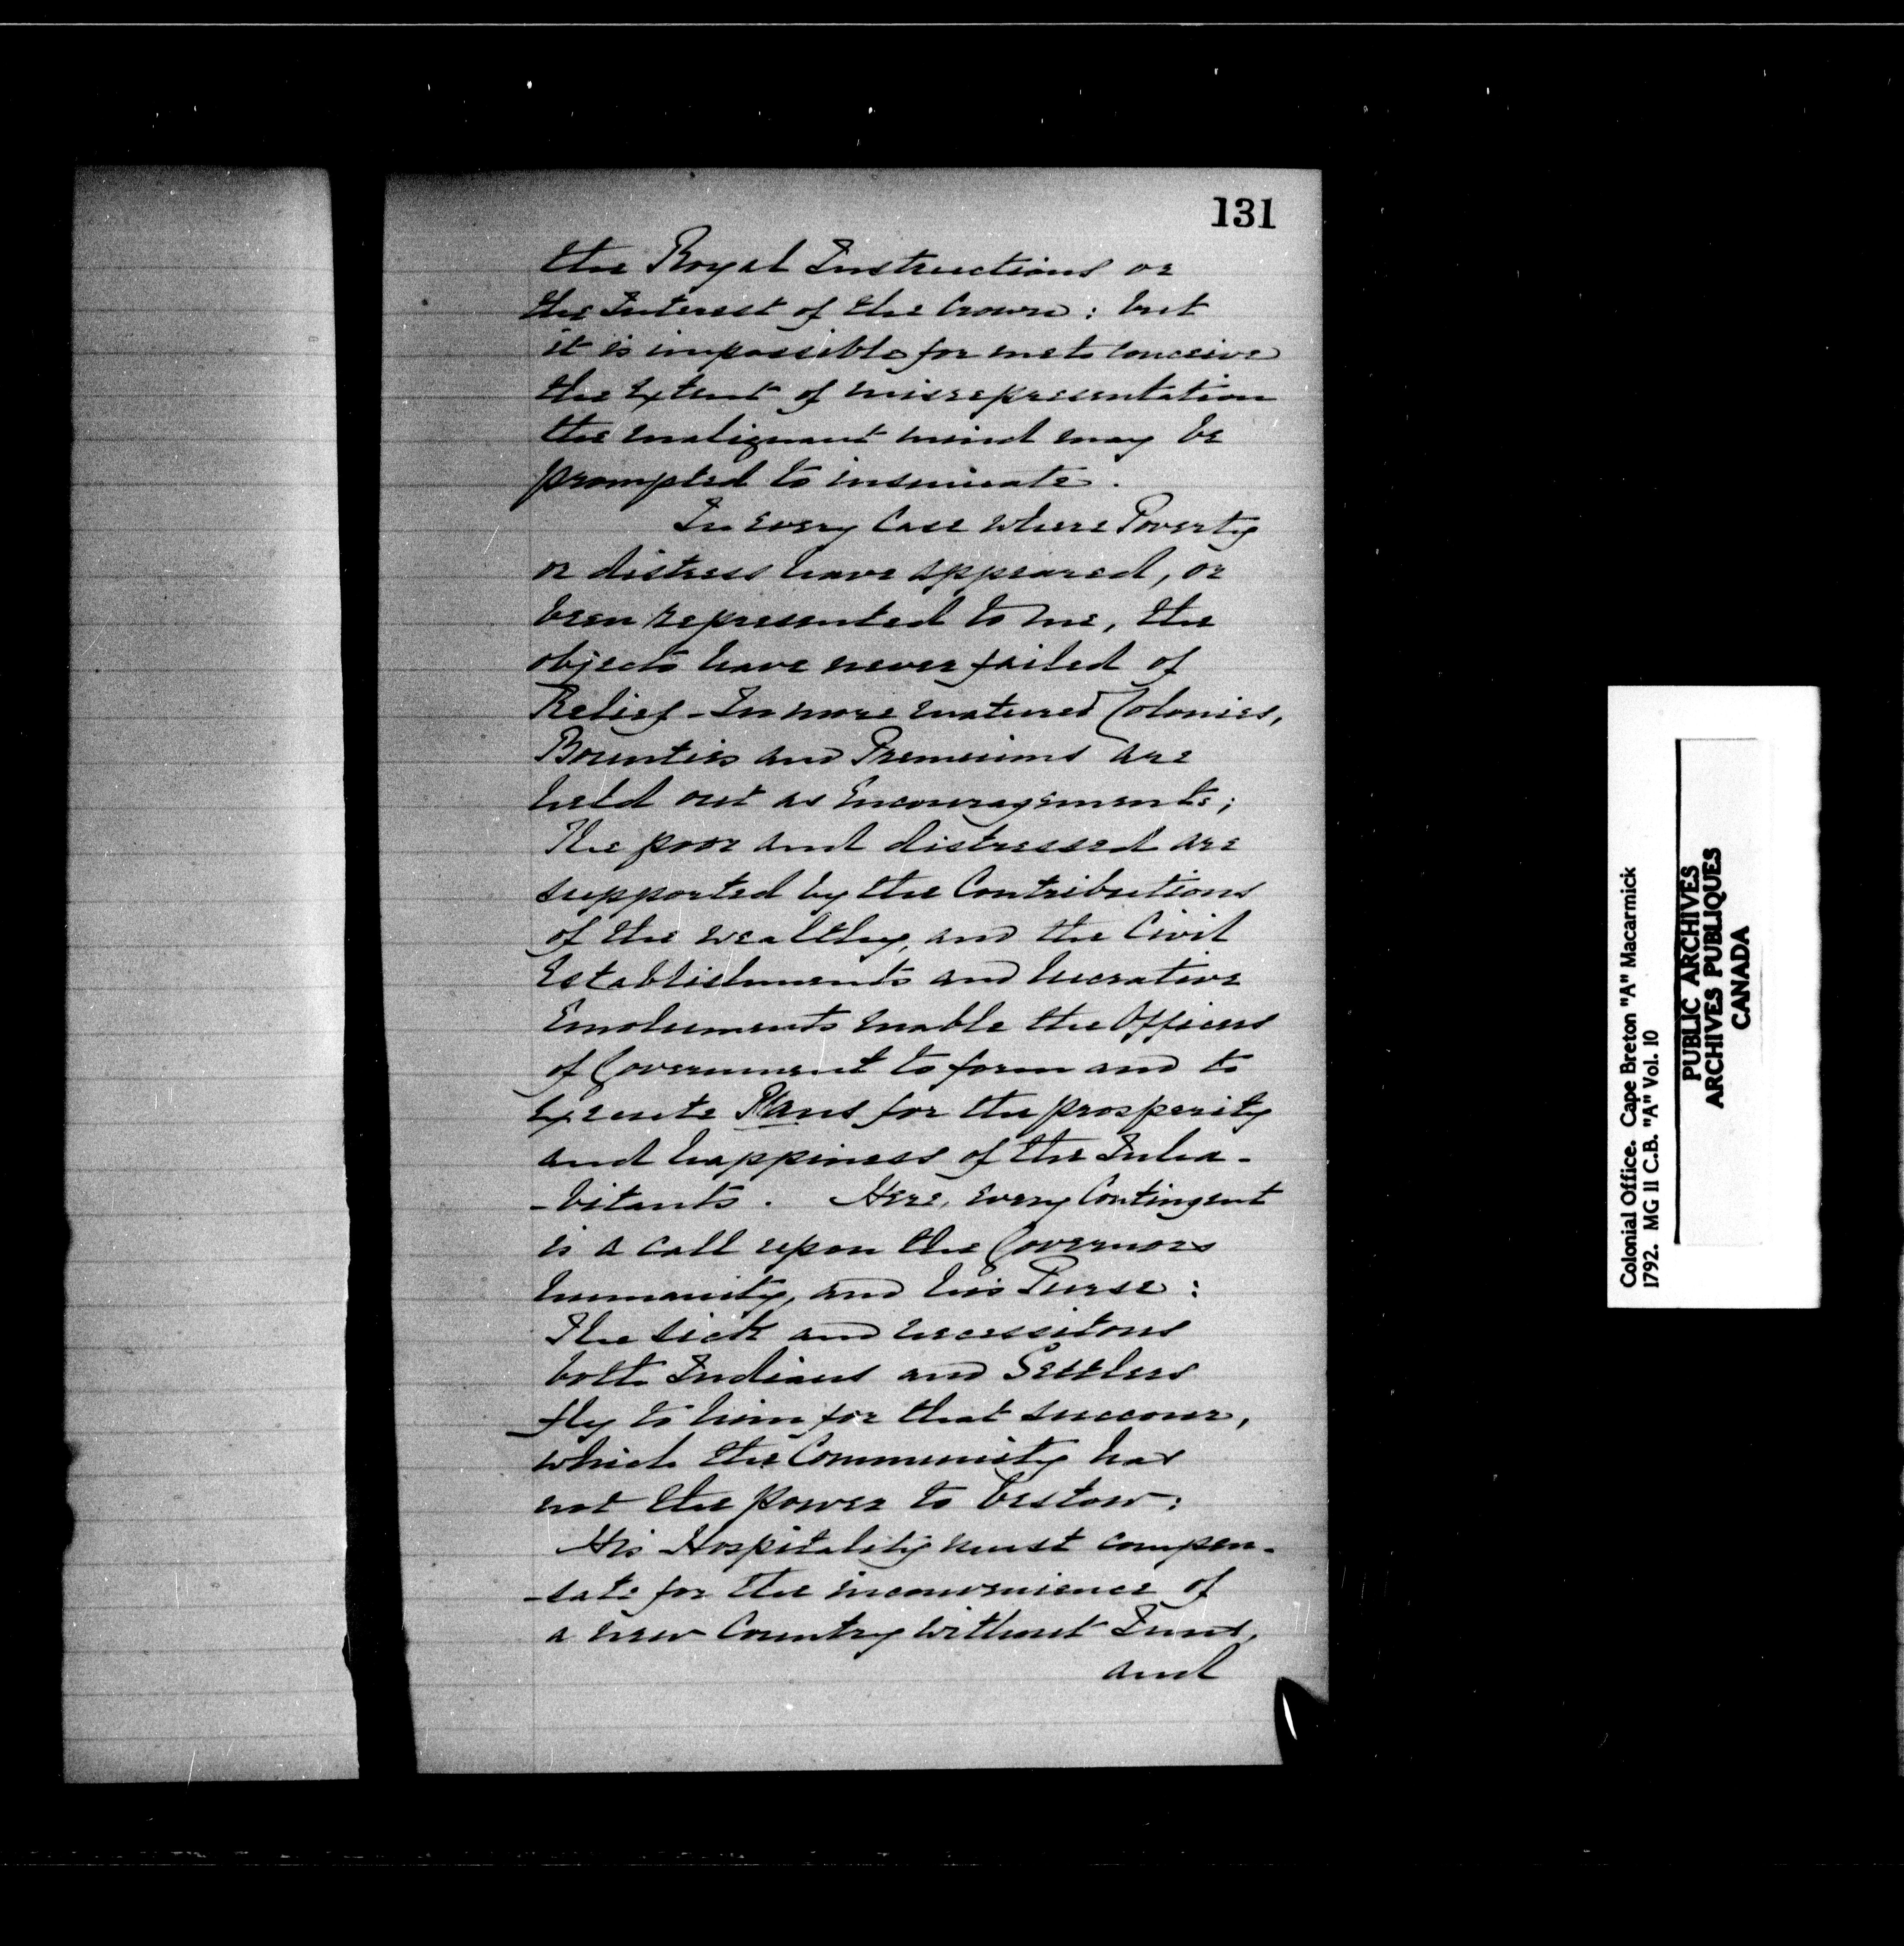 131
the Royal Instructions or
the Interest of the Crown: but
it is impossible for me to conceive
the Extent of misrepresentation
the malignant mind may be
prompted to insinuate.
In Every Case where Poverty
or distress have appeared, or
been represented to me, the
objects have never failed of
Relief - In more matured Colonies,
Bounties and Premiums are
held out as Encouragements;
The poor and distressed are
supported by the Contributions
of the wealthy, and the Civil
Establishments and lucrative
Emoluments enable the Officers
of Government to form and to
Execute Plans for the prosperity
and happiness of the Inha-
-bitants. Here, Every Contingent
is a call upon the Governors
humanity, and his Purse:
The Sick and necessitous
both Indians and Settlers
fly to him for that succour,
which the Community has
not the power to bestow:
His Hospitality must compen-
-sate for the inconvenience of
a new Country without Inns,
and
Colonial Office. Cape Breton "A" Macarmick
1792. MG 11 C.B. "A" Vol. 10
PUBLIC ARCHIVES
ARCHIVES PUBLIQUES
CANADA